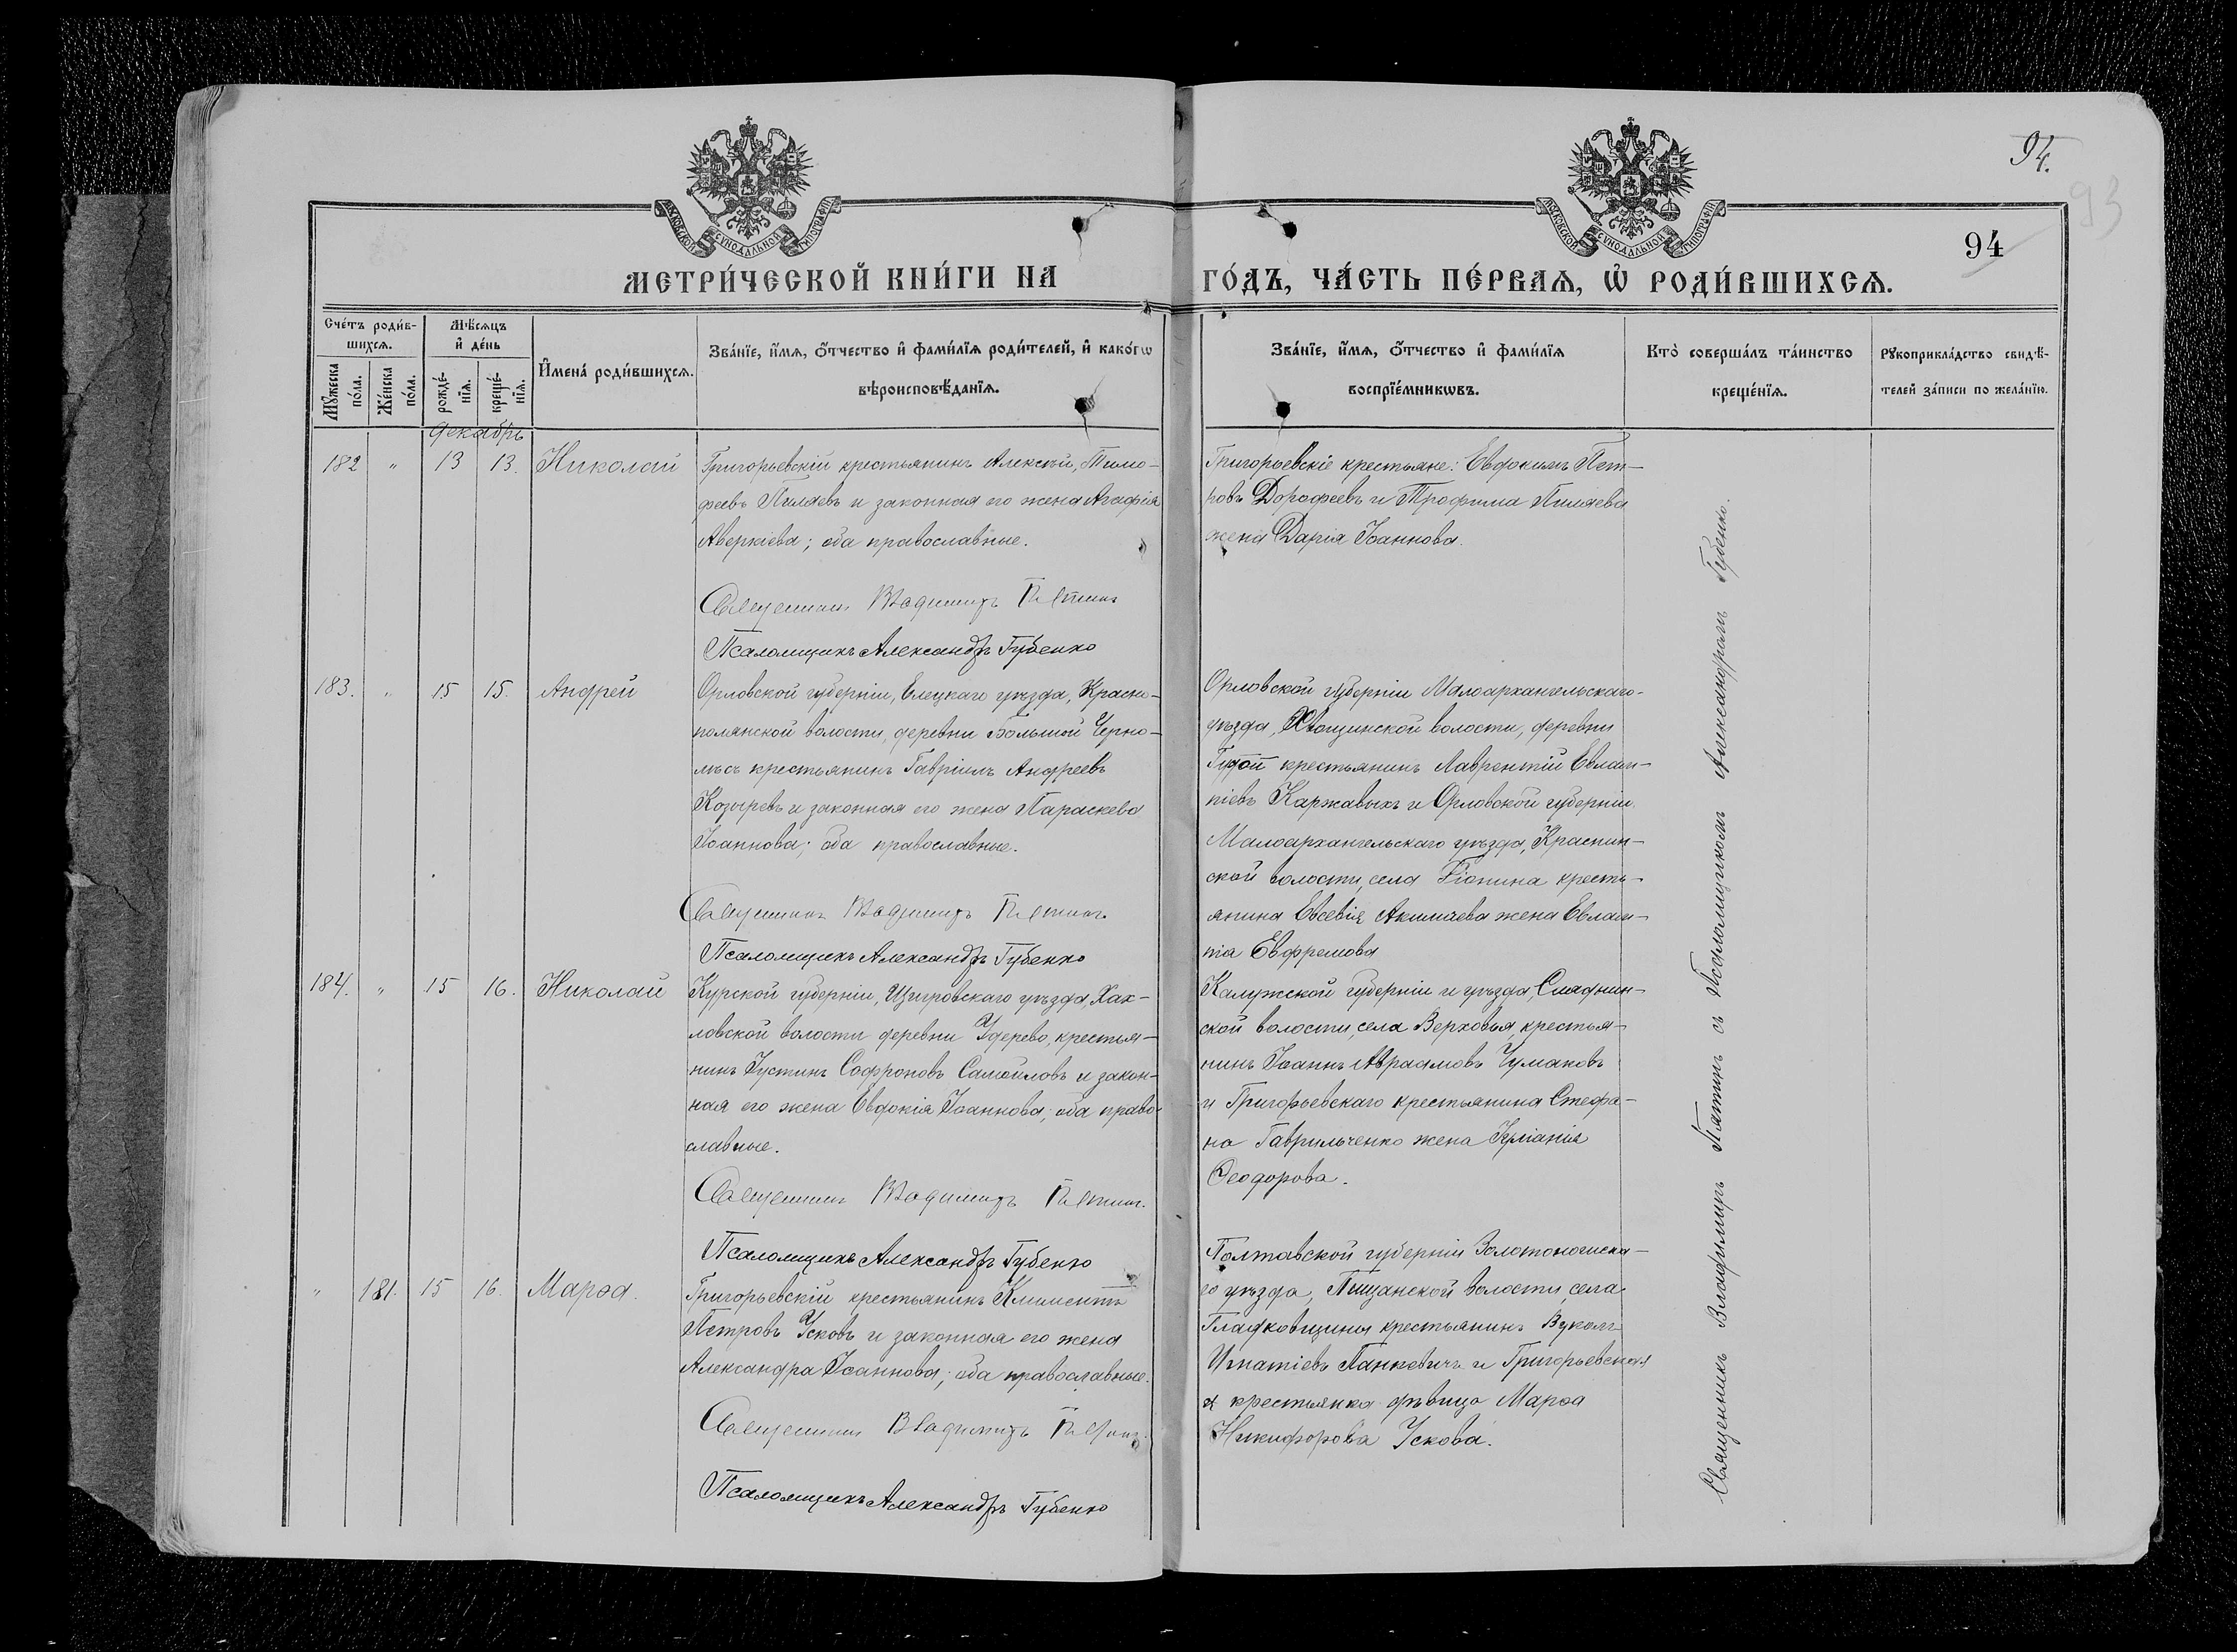 94.
93
МОСКОВСКОЙ СѴНОДАЛЬНОЙ ТИПОГРАФІИ
МОСКОВСКОЙ СѴНОДАЛЬНОЙ ТИПОГРАФІИ
94
МЕТРИ́ЧЕСКОЙ КНИ́ГИ НА
ГО́ДЪ, ЧА́СТЬ ПЕ́РВАѦ, Ѡ҆ РОДИ́ВШИХСѦ.
Сче́тъ роди́в-
шихсѧ.
Мꙋ́жеска
по́ла.
Же́нска
по́ла.
Мѣ́сѧцъ
и҆ де́нь
рожде́-
нїѧ.
креще́-
нїѧ.
И҆мена́ роди́вшихсѧ.
Зва́нїе, и҆́мѧ, ѻ҆́тчество и҆ фами́лїѧ роди́телей, и҆ како́гѡ
вѣроисповѣ́данїѧ.
Зва́нїе, и҆́мѧ, ѻ҆́тчество и҆ фами́лїѧ
воспрїе́мникѡвъ.
Кто̀ соверша́лъ та́инство
креще́нїѧ.
Рꙋкоприкла́дство свидѣ́-
телей за́писи по жела́нїю.
Декабрь
182 " 13 13. Николай
Григорьевскій крестьянинъ Алексѣй, Тимо-
феевъ Пиляевъ и законная его жена Агафія
Аверкіева; оба православные.
Священникъ Владимиръ Пятинъ
Псаломщикъ Александръ Губенко
Григорьевскіе крестьяне: Евдокимъ Пет-
ровъ Дорофеевъ и Трофима Пиляева
жена Дарія Іоаннова.
183. " 15 15. Андрей
Орловской губерніи, Елецкаго уѣзда, Красно-
полянской волости, деревни Большой Черно-
лѣсъ крестьянинъ Гавріилъ Андреевъ
Козыревъ и законная его жена Параскева
Іоаннова; оба православные.
Священникъ Владимиръ Пятинъ.
Псаломщикъ Александръ Губенко
Орловской губерніи Малоархангельскаго-
уѣзда, Хвощинской волости, деревни
крестьянинъ Лаврентій Евлам-
піевъ Каржавыхъ и Орловской губерніи
Малоархангельскаго уѣзда,
ской волости, села кресть-
янина Евсевія Акимчева жена Евлам-
пія Евфремова
184. " 15 16. Николай
Курской губерніи, Щигровскаго уѣзда, Хах-
ловской волости деревни Удерево, крестья-
нинъ Іустинъ Софроновъ Самойловъ и закон-
ная его жена Евдокія Іоаннова; оба право-
славные.
Священникъ Владимиръ Пятинъ.
Псаломщикъ Александръ Губенко
Калужской губерніи и уѣзда,
ской волости, села Верховья, крестья-
нинъ Іоаннъ Авраамовъ Чумаковъ
и Григорьевскаго крестьянина Стефа-
на Гаврильченко жена Іуліанія
Ѳеодорова.
" 181. 15 16. Марѳа.
Григорьевскій крестьянинъ Климентъ
Петровъ Усковъ и законная его жена
Александра Іоаннова; оба православные.
Священникъ Владимиръ Пятинъ.
Псаломщикъ Александръ Губенко
Полтавской губерніи Золотоношска-
го уѣзда, Пищанской волости, села
Гладковщины крестьянинъ Вуколъ
Игнатіевъ Панкевичъ и Григорьевская
крестьянка дѣвица Марѳа
Никифорова Ускова.
Священникъ Владимиръ Пятинъ съ Псаломщикомъ Александромъ Губенко.